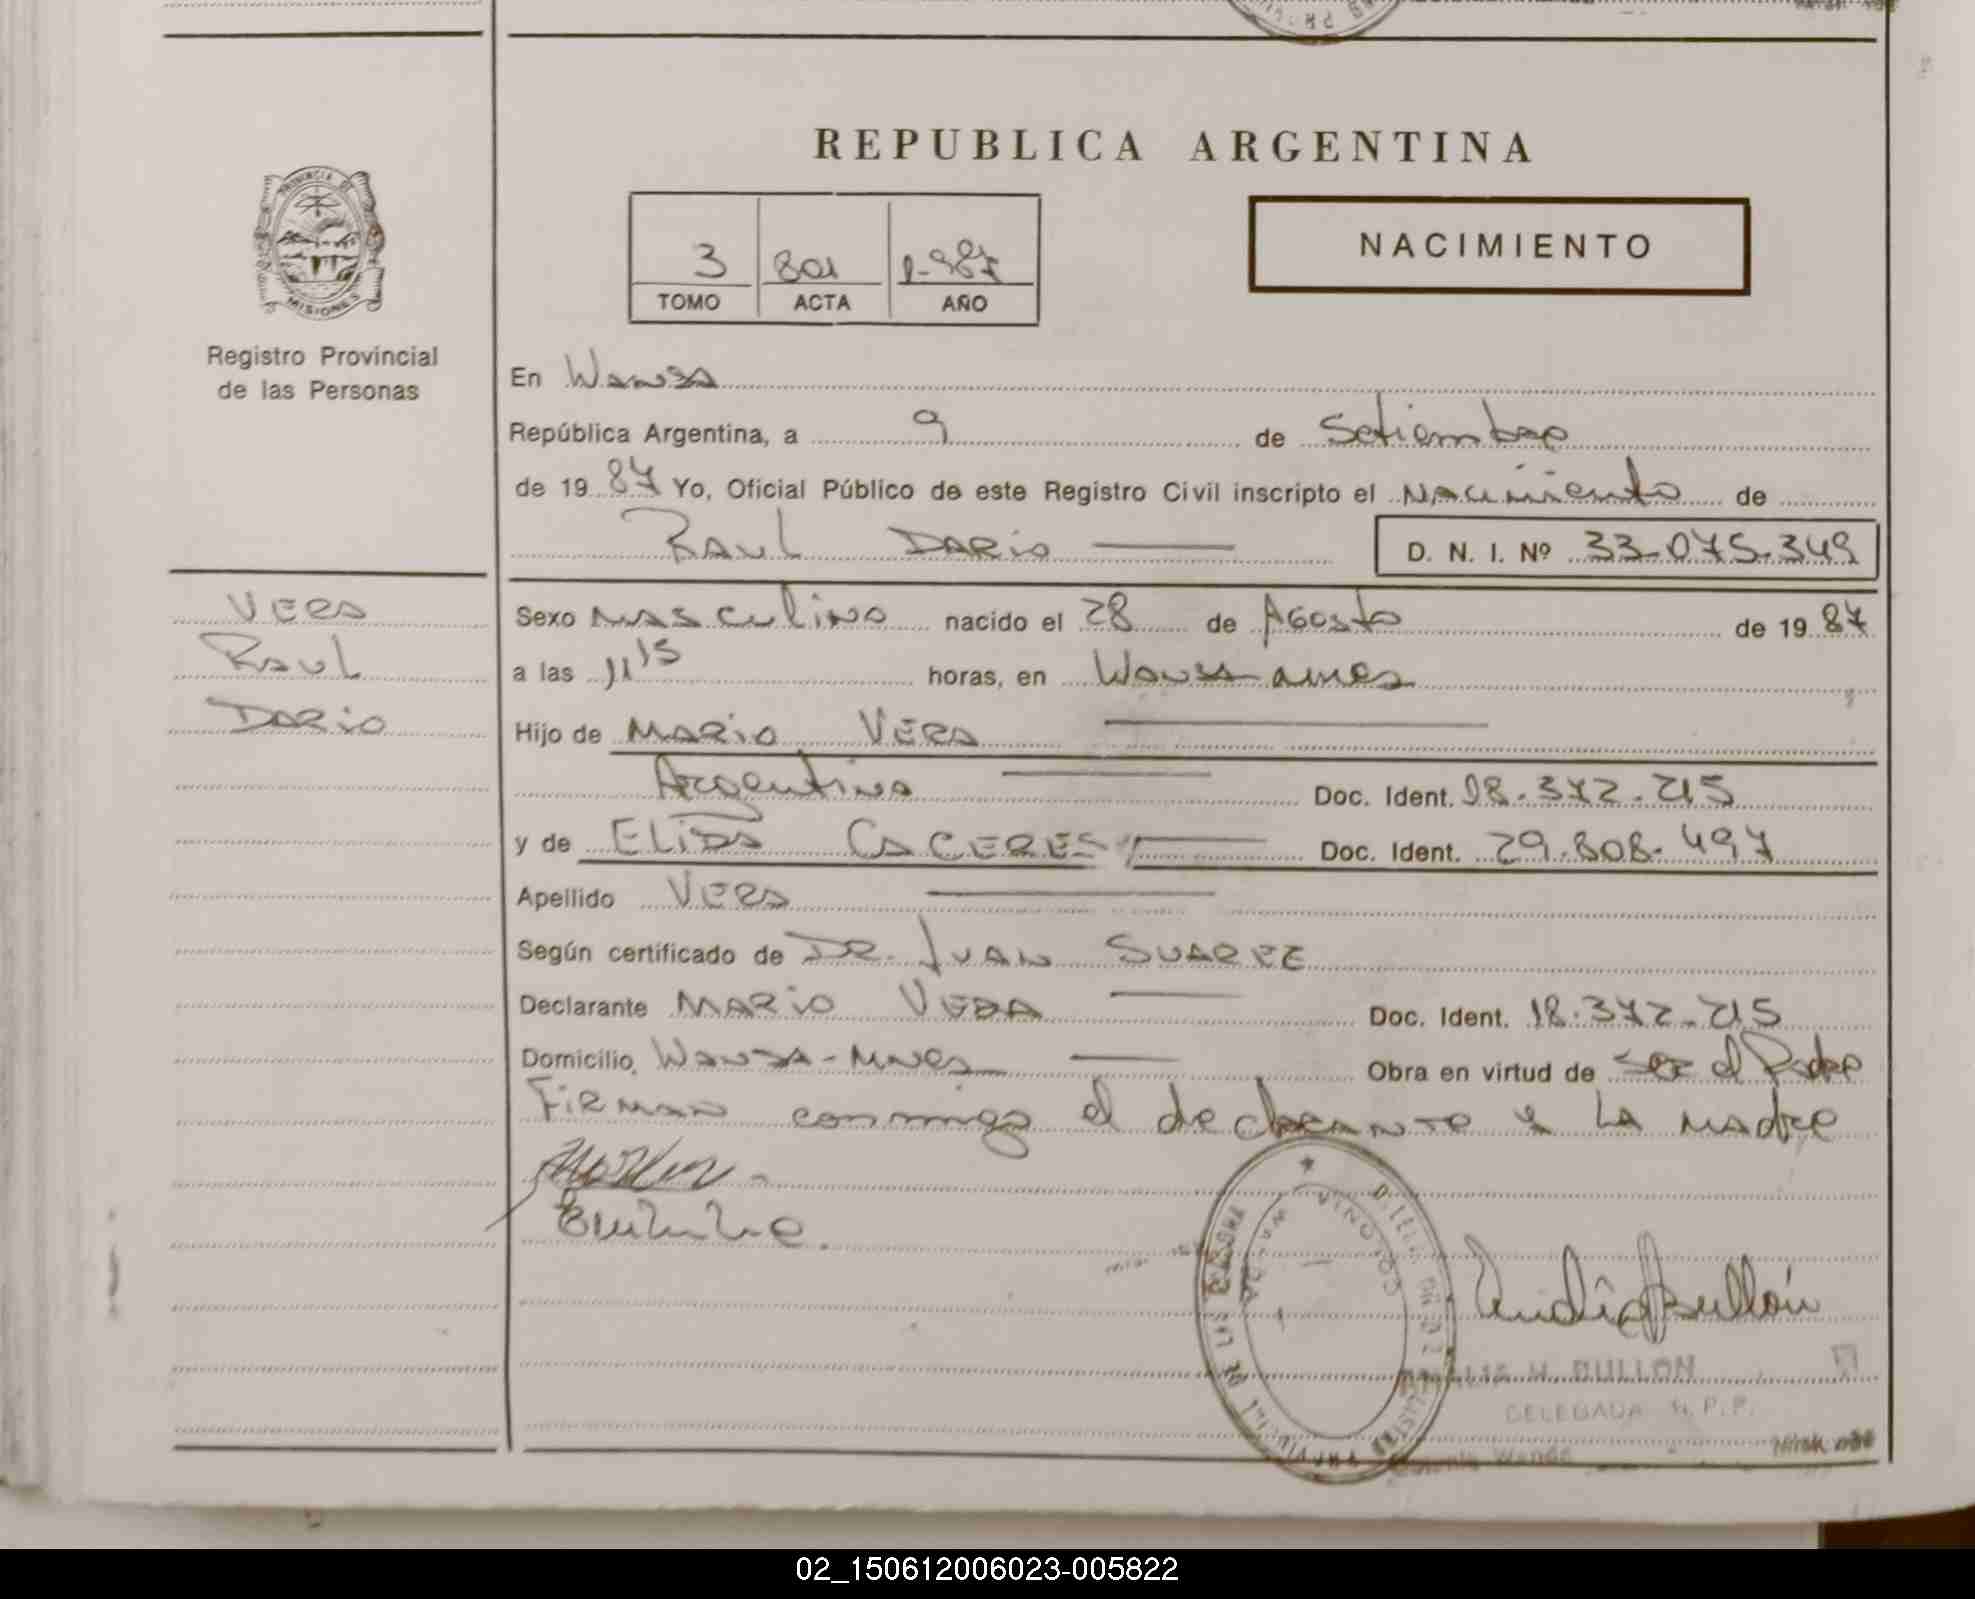 REPUBLICA ARGENTINA
PROVINCIA DE
MISIONES
Registro Provincial
de las Personas
3 801 1.987
TOMO ACTA AÑO
NACIMIENTO
En Wanda
República Argentina, a 9 de Setiembre
de 1987 Yo, Oficial Público de este Registro Civil inscripto el Nacimiento de
RAUL DARIO D. N. I. Nº 33.075.349
VERA
RAUL
DARIO
Sexo MASculino nacido el 28 de Agosto de 1987
a las 11 15 horas, en Wanda
Hijo de MARIO VERA
Argentino Doc. Ident. 18.372.215
y de ELIDA CACERES Doc. Ident. 29.808.497
Apellido VERA
Según certificado de DR. JUAN SUAREZ
Declarante MARIO VERA Doc. Ident. 18.372.215
Domicilio, Wanda - Mnes Obra en virtud de ser el Padre
FIRMAN conmigo el declarante y LA madre
AMALIA H. BULLON
DELEGADA R.P.P.
Colonia Wanda
02_150612006023-005822